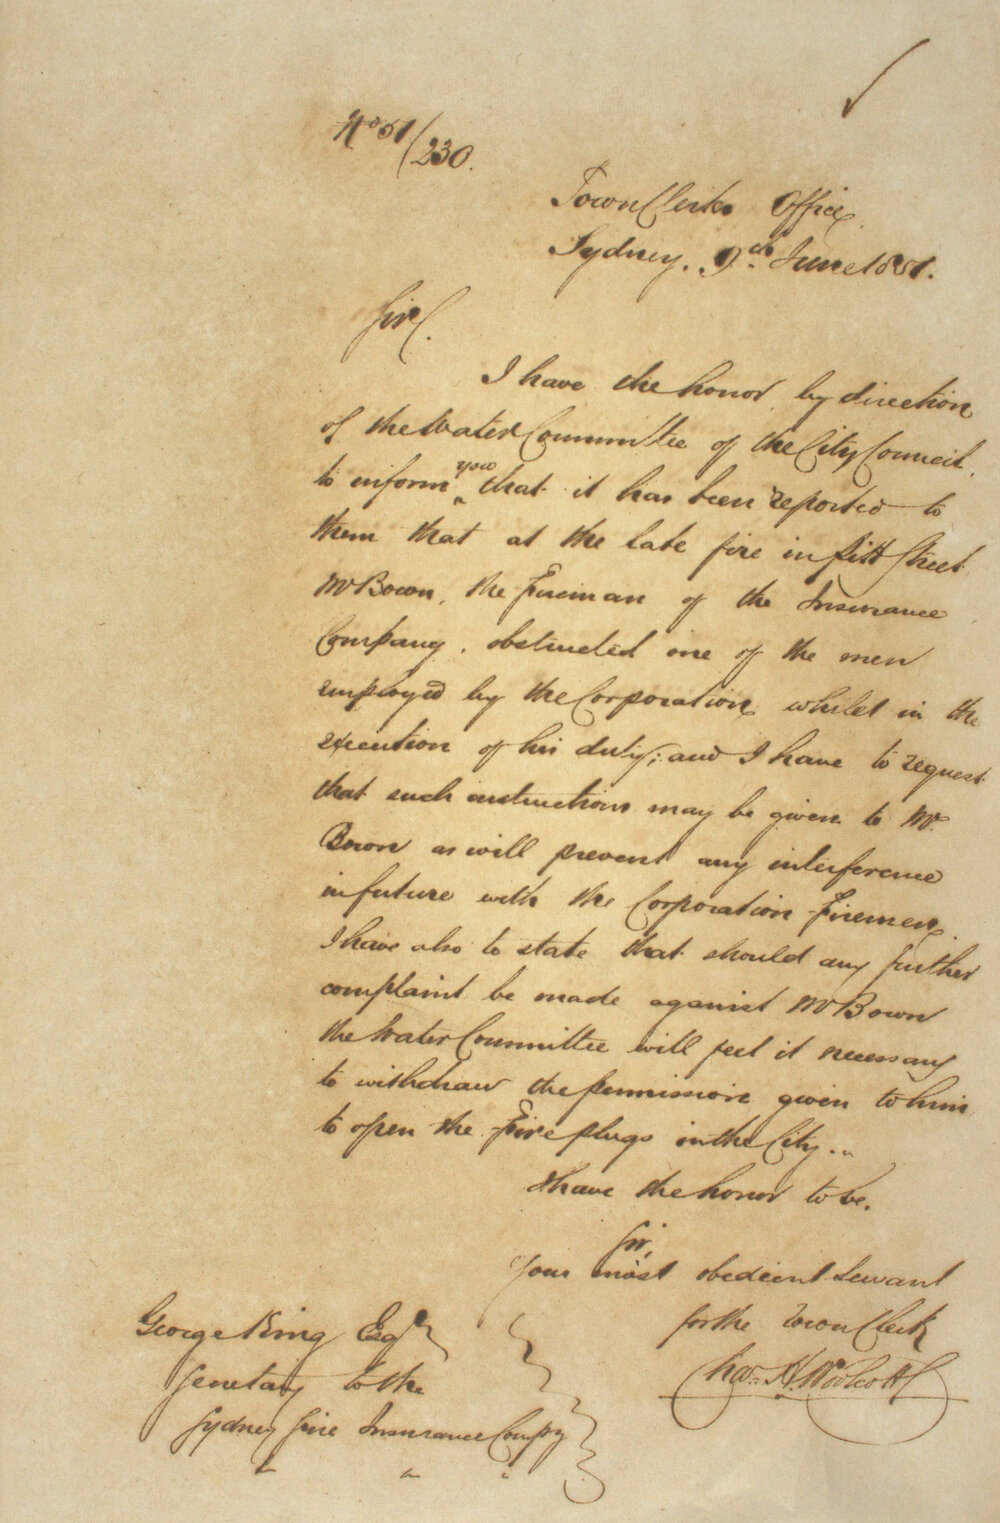 No 51/230.
Town Clerks Office
Sydney. 9th June 1851.
Sir,
I have the honor by direction
of the Water Committee of the City Council
to inform you that it has been reported to
them that at the late fire in Pitt Street
Mr Bown, the Fireman of the Insurance
Company, obstructed one of the men
employed by the Corporation whilst in the
execution of his duty; and I have to request
that such instructions may be given to Mr
Bown as will prevent any interference
in future with the Corporation Firemen.
I have also to state that should any further
complaint be made against Mr Bown
the Water Committee will feel it necessary
to withdraw the permission given to him
to open the Fire plugs in the City..
I have the honor to be.
Sir,
Your most obedient Servant
for the Town Clerk
Chas. H. Woolcott
George King Esqr
Secretary to the
Sydney Fire Insurance Compy